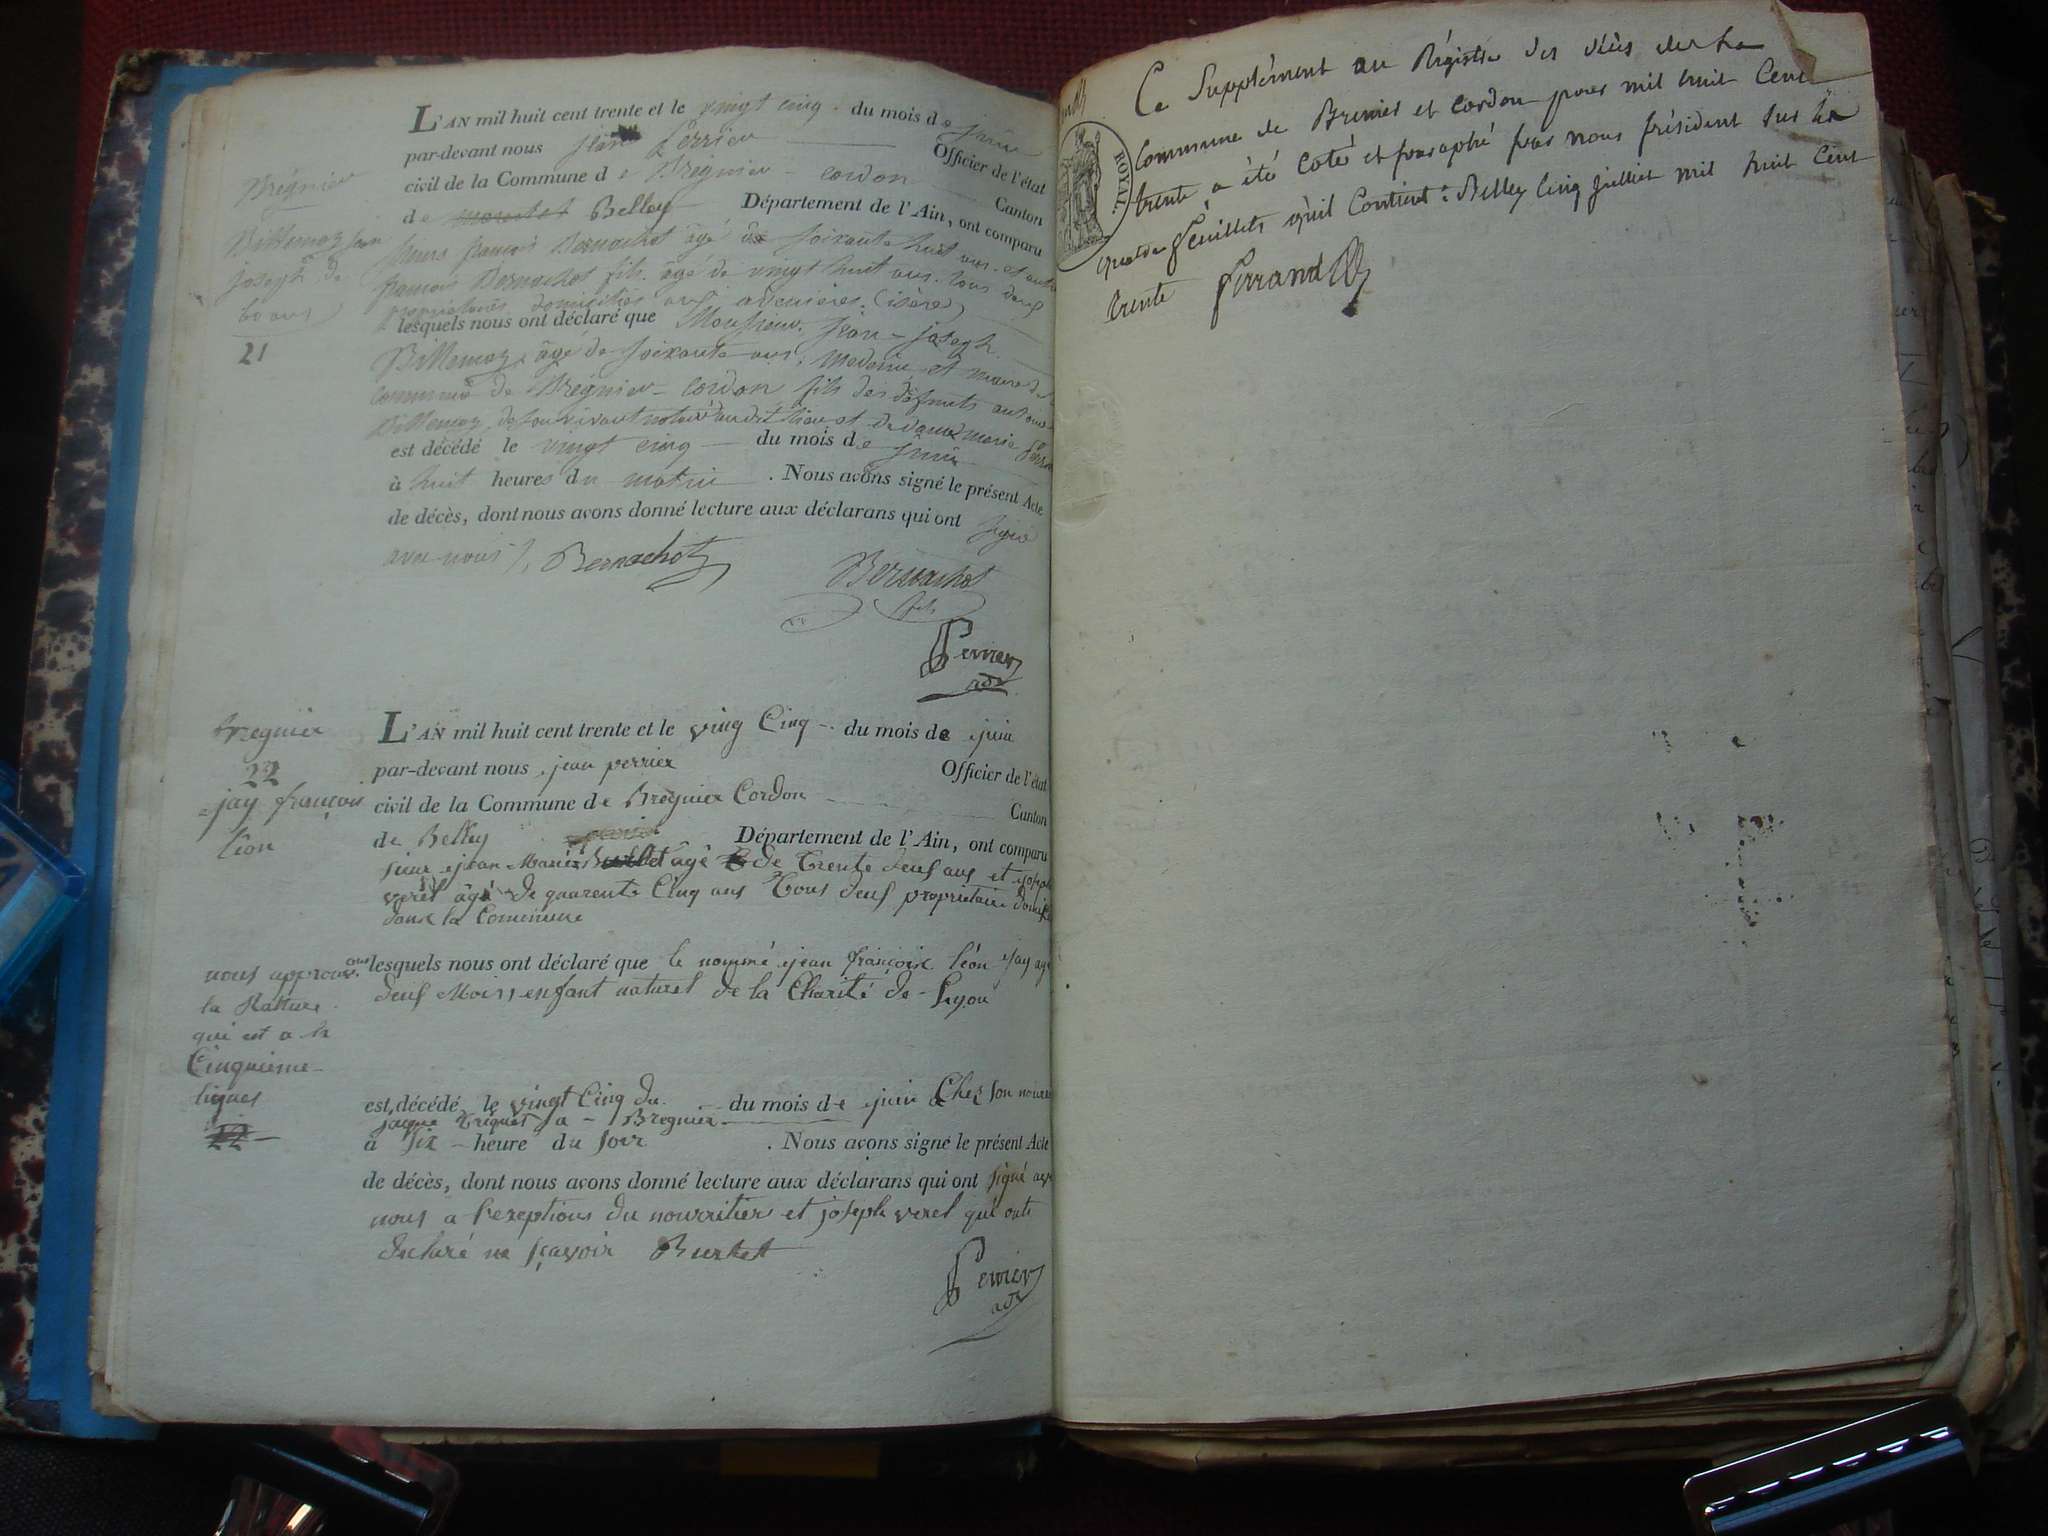 Brégnier
Dittemar Jean
joseph de
60 ans
21
L'AN mil huit cent trente et le vingt cinq du mois de juin
par-devant nous Jean Perrier Officier de l'état
civil de la Commune de Brégnier - cordon Canton
de Belley Département de l'Ain, ont comparu
sieurs françois Bernachot âgé de soixante huit ans et autre
françois Bernachot fils. âgé de vingt huit ans. tous deux
propriétaires domiciliés aux avenières (isère)
lesquels nous ont déclaré que Monsieur jean - joseph
âgé de soixante ans, medecin et maire de la
commune de Brégnier - cordon fils des défunts antoine
de son vivant notaire dudit lieu et de dame marie
est décédé le vingt cinq du mois de juin
à huit heures du matin . Nous avons signé le présent Acte
de décès, dont nous avons donné lecture aux déclarans qui ont signé
avec nous, Bernachot Bernachot
fils
Perrier
adj
Bregnier
22
jay françois
léon
L'AN mil huit cent trente et le ving Cinq du mois de juin
par-devant nous jean perrier Officier de l'état
civil de la Commune de Brégnier Cordon Canton
de Belley Département de l'Ain, ont comparu
sieur jean Marie âgé de trente deuf ans et joseph
verel âgé de quarente Cinq ans Tous deuf proprietaire
dans la Commune
nous approuvons
la Rature
qui est a la
Cinquieme
lignes
22
lesquels nous ont déclaré que le nommé jean françoix léon jay agé
deuf Mois enfant naturel de la Charité de Lyon
est décédé le vingt Cinq du du mois de juin Chez son
jacque a Bregnier
à six heure du soir . Nous avons signé le présent Acte
de décès, dont nous avons donné lecture aux déclarans qui ont signé avec
nous a l'exeptions du nourritier et joseph verel qui onts
declaré ne sçavoir Burtet
Perrier
adj
ROYAL
Ce Supplément au Régistre des décès de la
Commune de Brenier et Cordon pour mil huit Cent
trente a été coté et paraphé par nous président sur les
quatre feuillets qu'il Contient : Belley Cinq juillet mil huit Cent
trente Ferrand